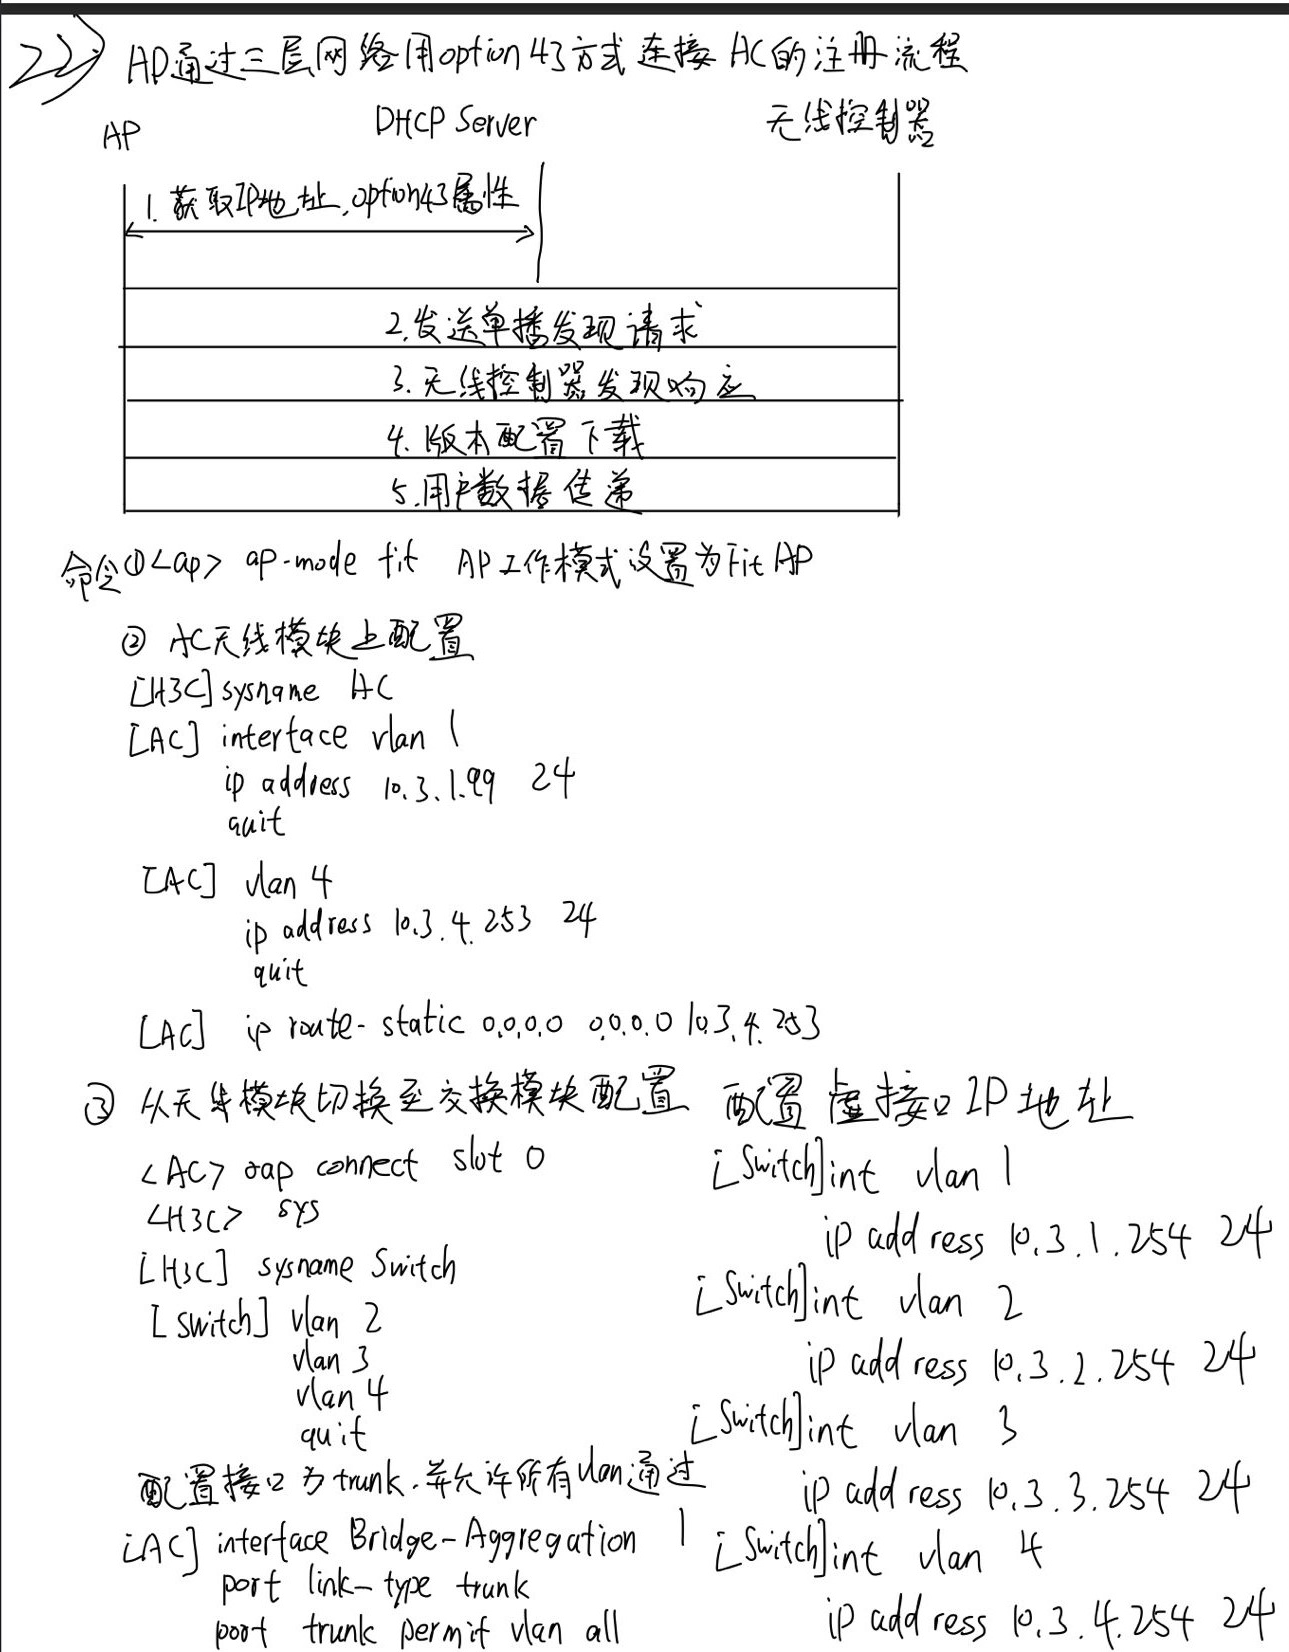 22》 AP通过三层网络用option 43方式连接AC的注册流程
AP DHCP Server 无线控制器
1. 获取IP地址,option43属性
2.发送单播发现请求
3.无线控制器发现响应
4.版本配置下载
5.用户数据传递
命令①<ap> ap-mode fit AP工作模式设置为Fit AP
② AC无线模块上配置
[H3C] sysname AC
[AC] interface vlan 1
ip address 10.3.1.99 24
quit
[AC] vlan 4
ip address 10.3.4.253 24
quit
[AC] ip route-static 0.0.0.0 0.0.0.0 10.3.4.253
③ 从无线模块切换至交换模块配置
<AC> oap connect slot 0
<H3C> sys
[H3C] sysname Switch
[switch] vlan 2
vlan 3
vlan 4
quit
配置接口为trunk.并允许所有vlan通过
[AC] interface Bridge-Aggregation 1
port link-type trunk
port trunk permit vlan all
配置虚接口IP地址
[Switch]int vlan 1
ip address 10.3.1.254 24
[Switch]int vlan 2
ip address 10.3.2.254 24
[Switch]int vlan 3
ip address 10.3.3.254 24
[Switch]int vlan 4
ip address 10.3.4.254 24